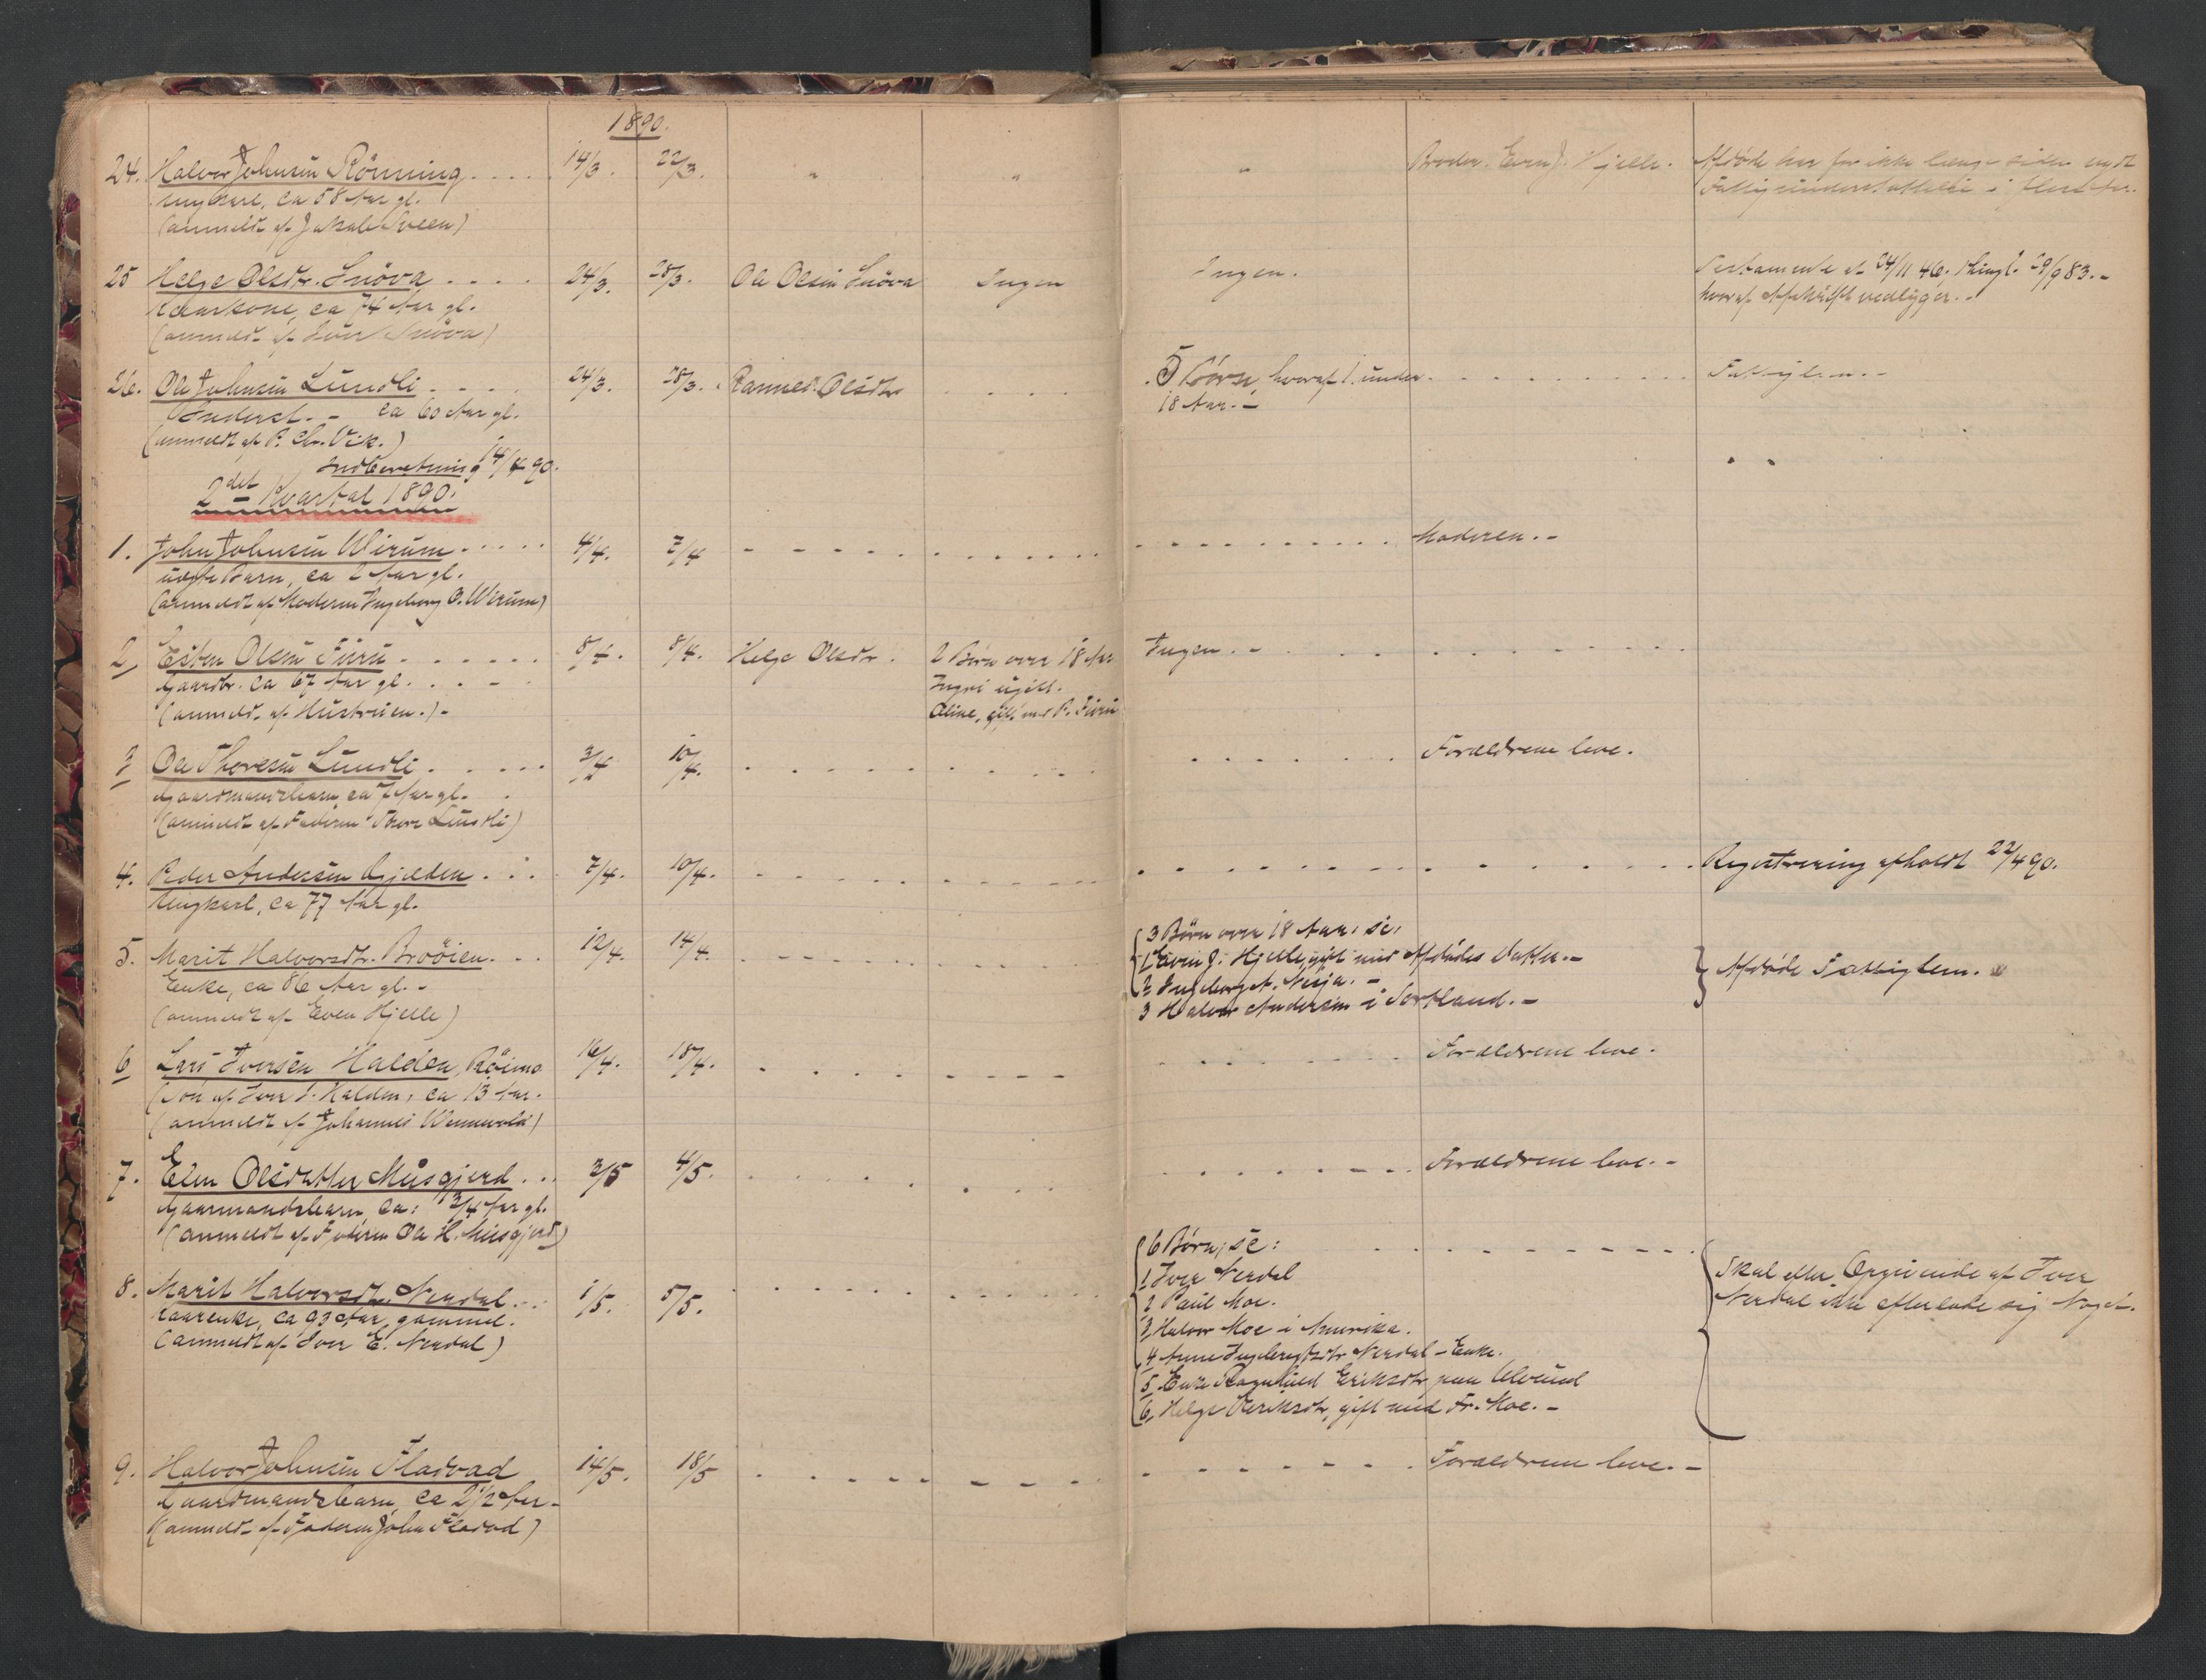 1890.
24. Halvor Johnsen Rönning . . . . 14/3. 22/3. " " " Broder Even J. Hjelle. Afdøde har for ikke længe siden nydt
Ungkarl, ca 58 Aar gl. Fattigunderstøttelse i flere Aar.
(anmeldt af Jakob Sveen)
25 Helge Olsdr. Snöva . . . . 24/3. 28/3. Ole Olsen Snöva Ingen Ingen. Testamente af 24/11 46. thingl. 29/9 83. -
Kaarkone, ca 74 Aar gl. hvoraf Afskrift vedligger. -
(anmeldt af Iver Snöva)
26. Ole Johnsen Lundli . . . . 24/3. 28/3. Olsdtr . . . . 5 Børn, hvoraf 1 under . . . . Fattiglem. -
Inderst. - ca 60 Aar gl. 18 Aar. -
(anmeldt af P. Chr. Vik.)
Indberetning 14/4 90.
2det Kvartal 1890.
1. John Johnsen Wirum . . . . . 4/4. 7/4 - - - - . . . . . . Moderen. -
uægte Barn, ca 2 Aar gl.
(anmeldt af Moderen Ingeborg O. Wirum)
2, Esten Olsen Furu - . . . . . . 8/4. 8/4. Helge Olsdr. 2 Børn over 18 Aar Ingen. - . . . . .
Gaardbr. ca 67 Aar gl. . . - . Ingri ugift.
(anmeldt af Hustruen.) - Oline, gift med P. Furu
3 Ole Thoresen Lundli . . . . . 3/4 10/4. . . . . . . . Forældrene leve.
Gaardmandsbarn, ca 7 Aar gl. .
(anmeldt af Faderen Thore Lundli)
4. Peder Andersen Gjelden . . . . 7/4. 10/4. . - - - - . . . . . Registrering afholdt 22/4 90.
Ungkarl, ca 77 Aar gl.
5. Marit Halvorsdtr. Broöien. . . 12/4. 14/4. . - - - - . . . 3 Børn over 18 Aar, sc.
1 Even J. Hjelle gift med Afdødes Datter. -
Enke, ca 86 Aar gl. - 2 Ingeborg A. Nisja. - Afdøde Fattiglem.
(anmeldt af Even Hjelle) 3 Halvor Andersen i Sortland. -
6 Lars Iversen Halden, Röimo 16/4. 18/4. . . . . - - - - . . . Forældrene leve.
(Søn af Iver L. Halden, ca 13 Aar.
(anmeldt af Johannes Wennevold)
7. Elen Olsdatter Musgjerd . . . 2/5 4/5. . . . . . . . . Forældrene leve. -
Gaarmandsbarn, ca: 3/4 Aar gl.
(anmeldt af Faderen Ole H. Musgjerd)
8. Marit Halvorsdtr. Nerdal . . . 1/5. 5/5. . . . . . . . 6 Børn, sc: . - - - - - Skal efter Opgivende af Iver
Kaarenke, ca 93 Aar gammel. 1 Iver Nerdal Nerdal ikke efterlade sig Noget.
(anmeldt af Iver E. Nerdal) 2 Paul Moe.
3, Halvor Moe i Amerika.
4 Anne Ingebrigtsdtr Nerdal - Enke.
5 Enke Ragnhild Eriksdtr paa Ulvund
6, Helge Eriksdtr, gift med Fr. Moe. -
9. Halvor Johnsen Fladvad 14/5. 18/5 . . - - - - - . Forældrene leve. -
Gaardmandsbarn, ca 2 1/2 Aar -
(anmeldt af Faderen John Fladvad)